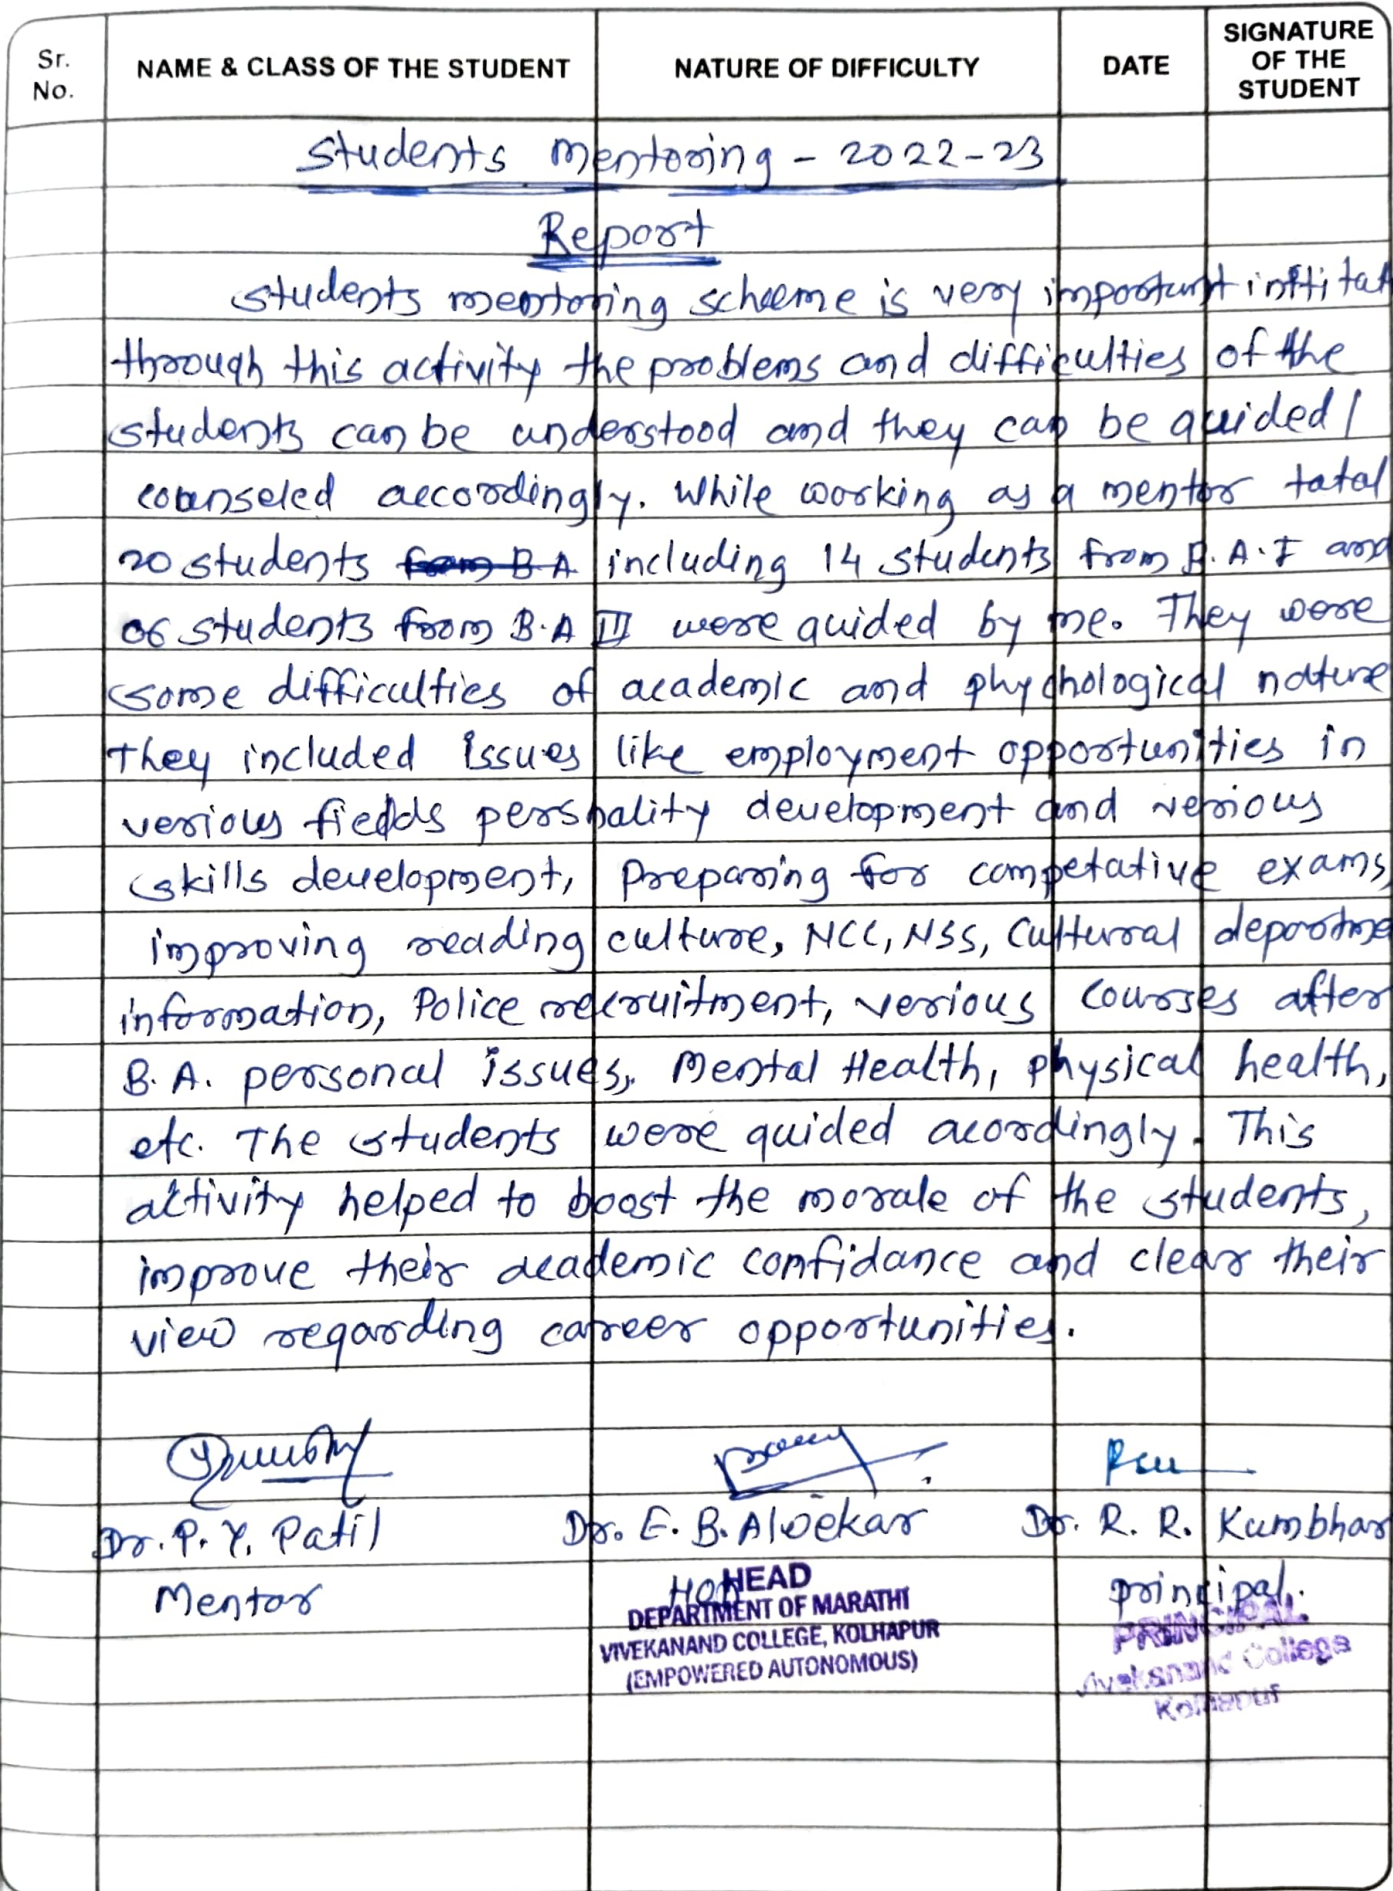 Sr. No.
NAME & CLASS OF THE STUDENT
NATURE OF DIFFICULTY
DATE
SIGNATURE OF THE STUDENT
Students Mentoring - 2022-23
Report
Students mentoring scheeme is very important
through this activity the problems and difficulties of the
students can be understood and they can be guided/
counseled accordingly. While working as a mentor total
20 students from B A including 14 students from B.A.I and
06 students from B.A III were guided by me. They were
some difficulties of academic and phychological nature
They included issues like employment opportunities in
verious fields persnality development and verious
skills development, Preparing for competative exams,
improving reading culture, NCC, NSS, Cultural departme
information, Police recruitment, verious courses after
B.A. personal issues, Mental Health, physical health,
etc. The students were guided acordingly. This
activity helped to boost the morale of the students,
improve their academic confidance and clear their
view regarding career opportunities.
Dr. P. Y. Patil
Dr. E. B. Alwekar
Dr. R. R. Kumbhar
Mentor
HOD
principal.
HEAD
DEPARTMENT OF MARATHI
VIVEKANAND COLLEGE, KOLHAPUR
(EMPOWERED AUTONOMOUS)
PRINCIPAL
Vivekanand College
Kolhapur